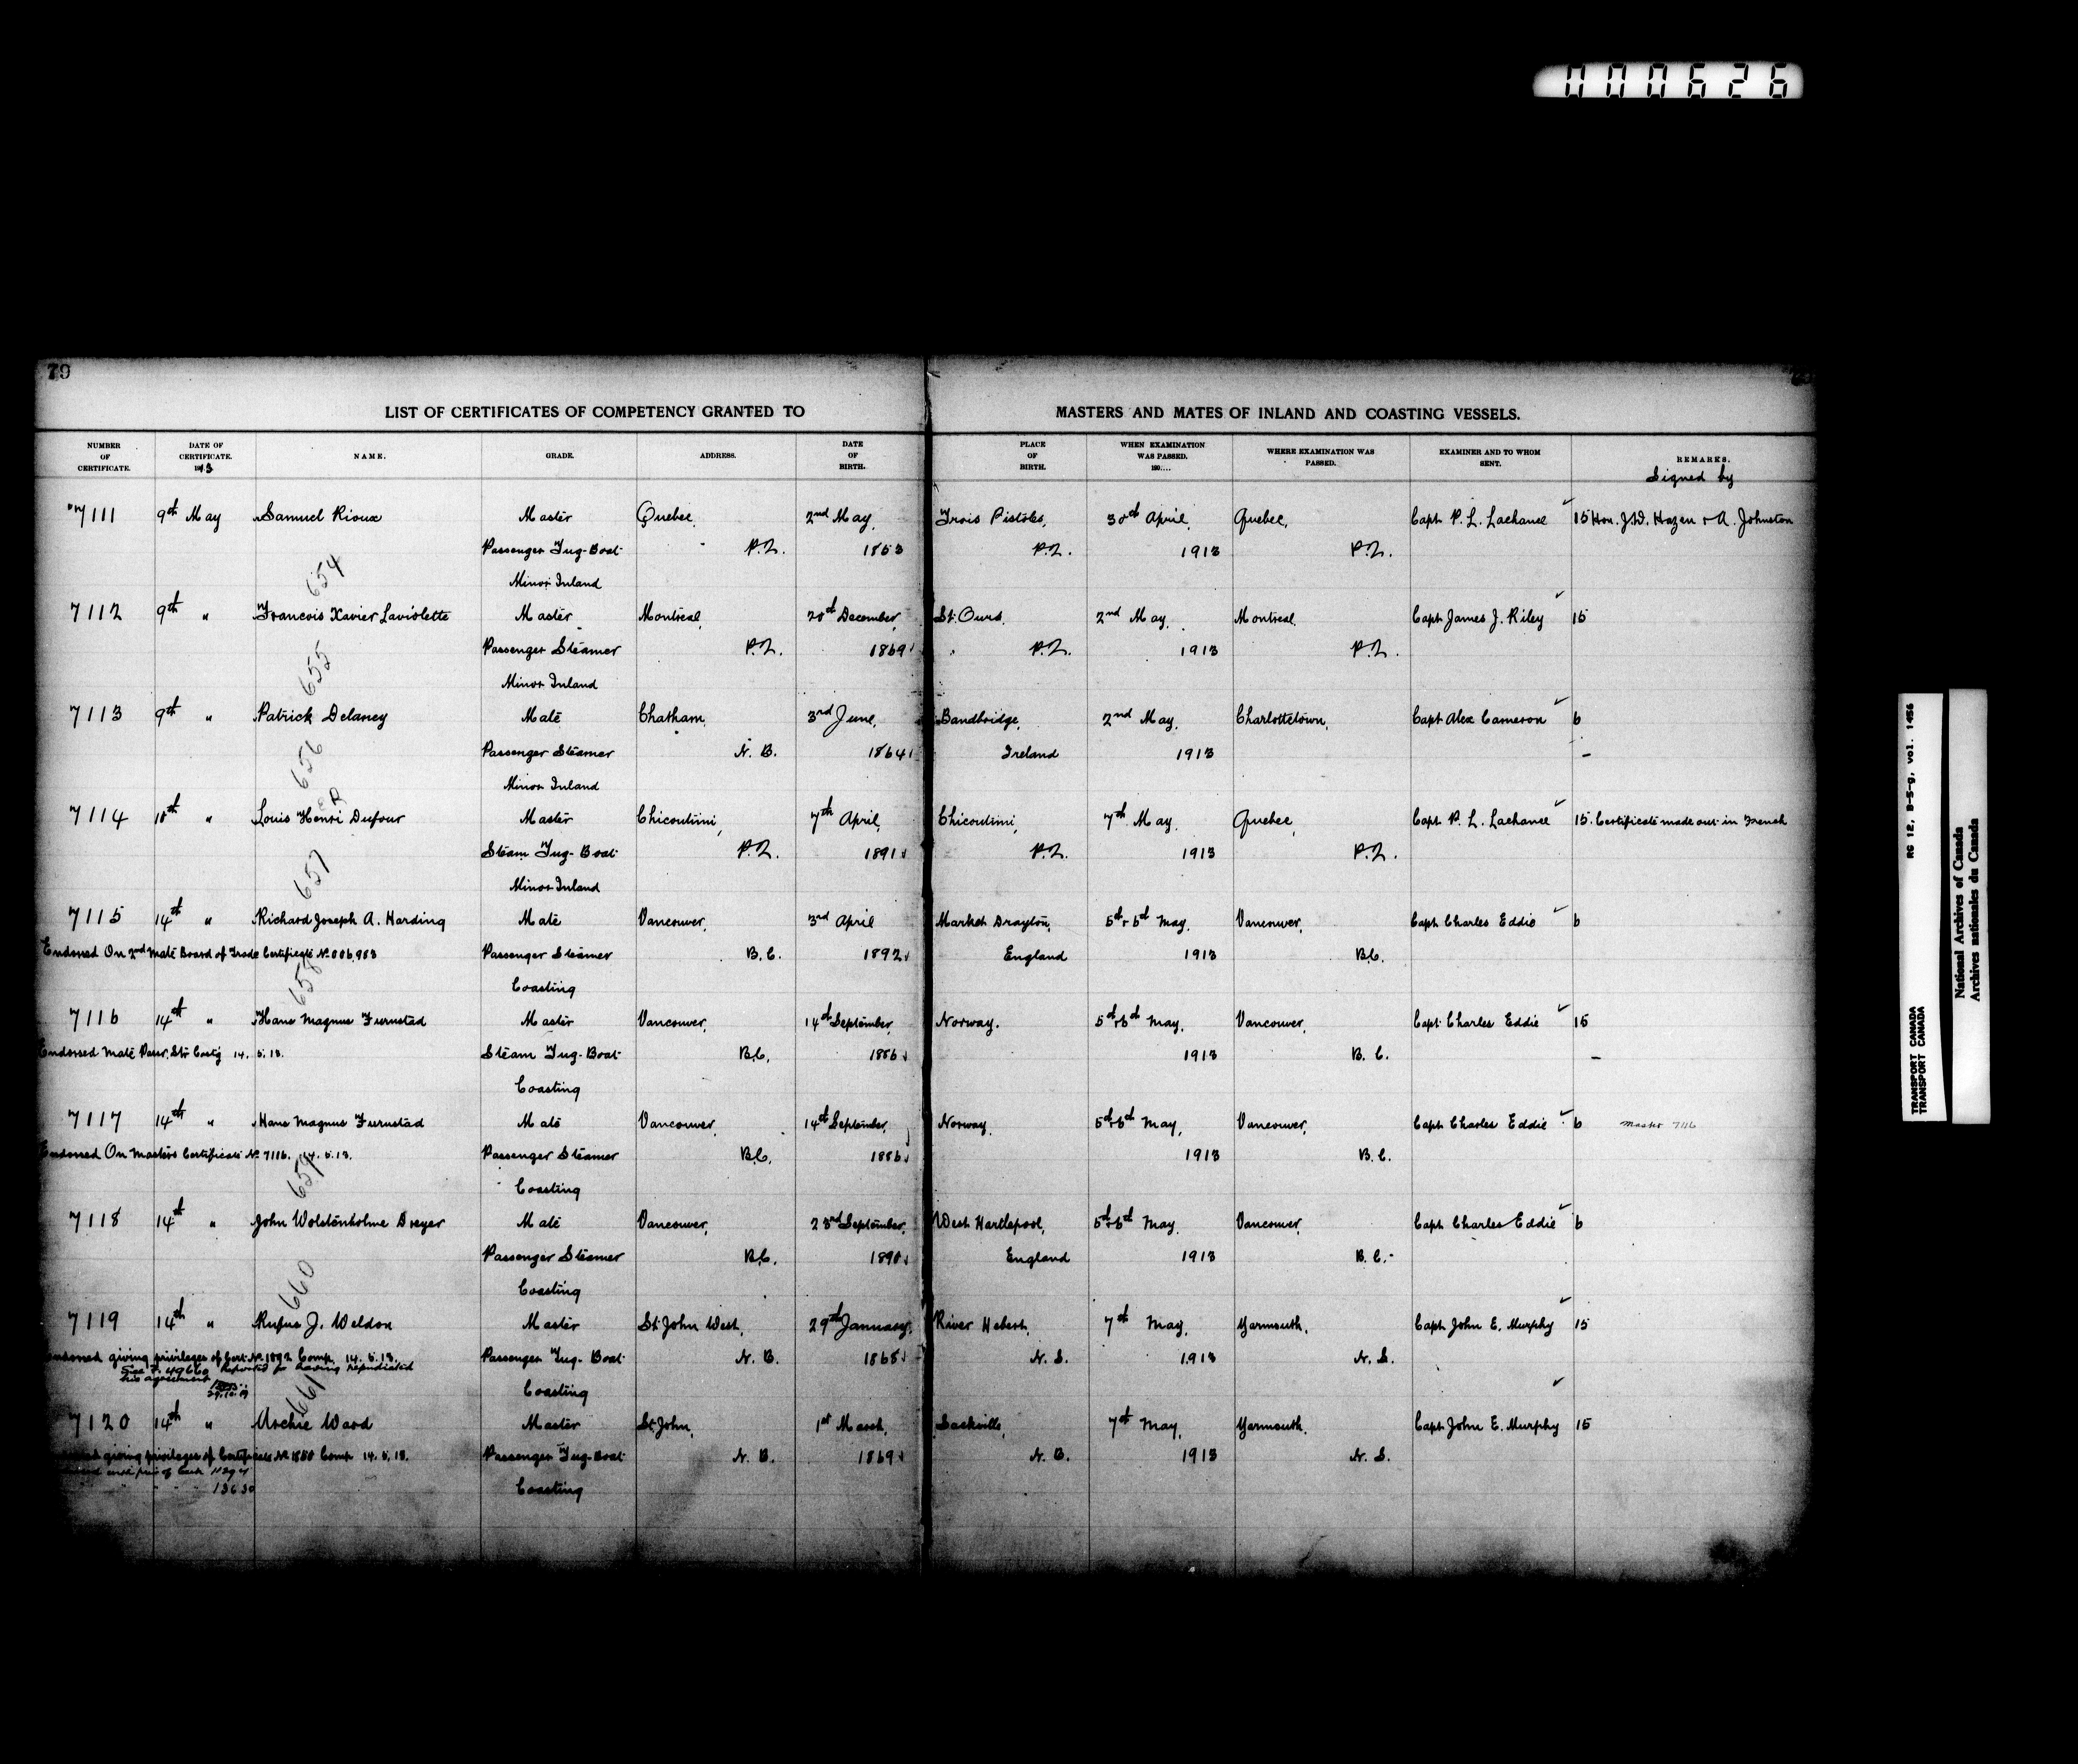 000626
79
LIST OF CERTIFICATES OF COMPETENCY GRANTED TO MASTERS AND MATES OF INLAND AND COASTING VESSELS.
NUMBER OF CERTIFICATE. DATE OF CERTIFICATE. 1913 NAME. GRADE. ADDRESS. DATE OF BIRTH. PLACE OF BIRTH. WHEN EXAMINATION WAS PASSED. 190.... WHERE EXAMINATION WAS PASSED. EXAMINER AND TO WHOM SENT. REMARKS.
Signed by
7111 9th May Samuel Rioux Master Quebec, 2nd May, Trois Pistoles, 30th April, Quebec, Capt. P. L. Lachance 15 Hon. J.D. Hazen & A. Johnston
Passenger Tug-Boat P.Q. 1853 P.Q. 1913 P.Q.
654 Minor Inland
7112 9th " Francois Xavier Laviolette Master Montreal, 20th December, St. Ours, 2nd May, Montreal, Capt James J. Riley 15
Passenger Steamer P.Q. 1869 P.Q. 1913 P.Q.
655 Minor Inland
7113 9th " Patrick Delaney Mate Chatham, 3rd June, Bandbridge, 2nd May, Charlottetown, Capt Alex Cameron 6
Passenger Steamer N. B. 1864 Ireland 1913 –
656 Minor Inland
7114 10th " Louis Henri Dufour Master Chicoutimi, 7th April, Chicoutimi, 7th May, Quebec, Capt P. L. Lachance 15. Certificate made out in French
Steam Tug-Boat P.Q. 1891 P.Q. 1913 P.Q.
657 Minor Inland
7115 14th " Richard Joseph A. Harding Mate Vancouver, 3rd April Market Drayton, 5th & 6th May, Vancouver, Capt Charles Eddie 6
Endorsed On 2nd Mate Board of Trade Certificate No. 006,983 Passenger Steamer B.C. 1892 England 1913 B.C.
658 Coasting
7116 14th " Hans Magnus Furnstad Master Vancouver, 14th September, Norway. 5th & 6th May, Vancouver, Capt. Charles Eddie 15
Endorsed Mate Passr. Str Coastg 14. 5. 13. Steam Tug-Boat B.C. 1886 1913 B. C. –
Coasting
7117 14th " Hans Magnus Furnstad Mate Vancouver, 14th September, Norway 5th & 6th May, Vancouver, Capt Charles Eddie 6 Master 7116
Endorsed On Masters Certificate No. 7116. 14. 5. 13. Passenger Steamer B.C. 1886 1913 B. C.
659 Coasting
7118 14th " John Wolstenholme Dreyer Mate Vancouver, 23rd September, West Hartlepool, 5th & 6th May, Vancouver, Capt Charles Eddie 6
Passenger Steamer B.C. 1890 England 1913 B. C.
660 Coasting
7119 14th " Rufus J. Weldon Master St. John West, 29th January, River Hebert, 7th May, Yarmouth, Capt John E. Murphy 15
Endorsed giving privileges of Cert. No. 1892 Comp. 14. 5. 13. Passenger Tug-Boat N. B. 1868 N. S. 1913 N. S.
See F. 49660 Reported for having repudiated
his agreement
29.10.19
661 Coasting
7120 14th " Archie Ward Master St. John, 1st March, Sackville, 7th May, Yarmouth. Capt John E. Murphy 15
giving privileges of Certificate No. 1880 Comp 14. 5. 13. Passenger Tug-Boat N. B. 1869 N. B. 1913 N. S.
of Cert 11294
13630 Coasting
RG 12, B-5-g, vol. 1456
TRANSPORT CANADA
TRANSPORT CANADA
National Archives of Canada
Archives nationales du Canada